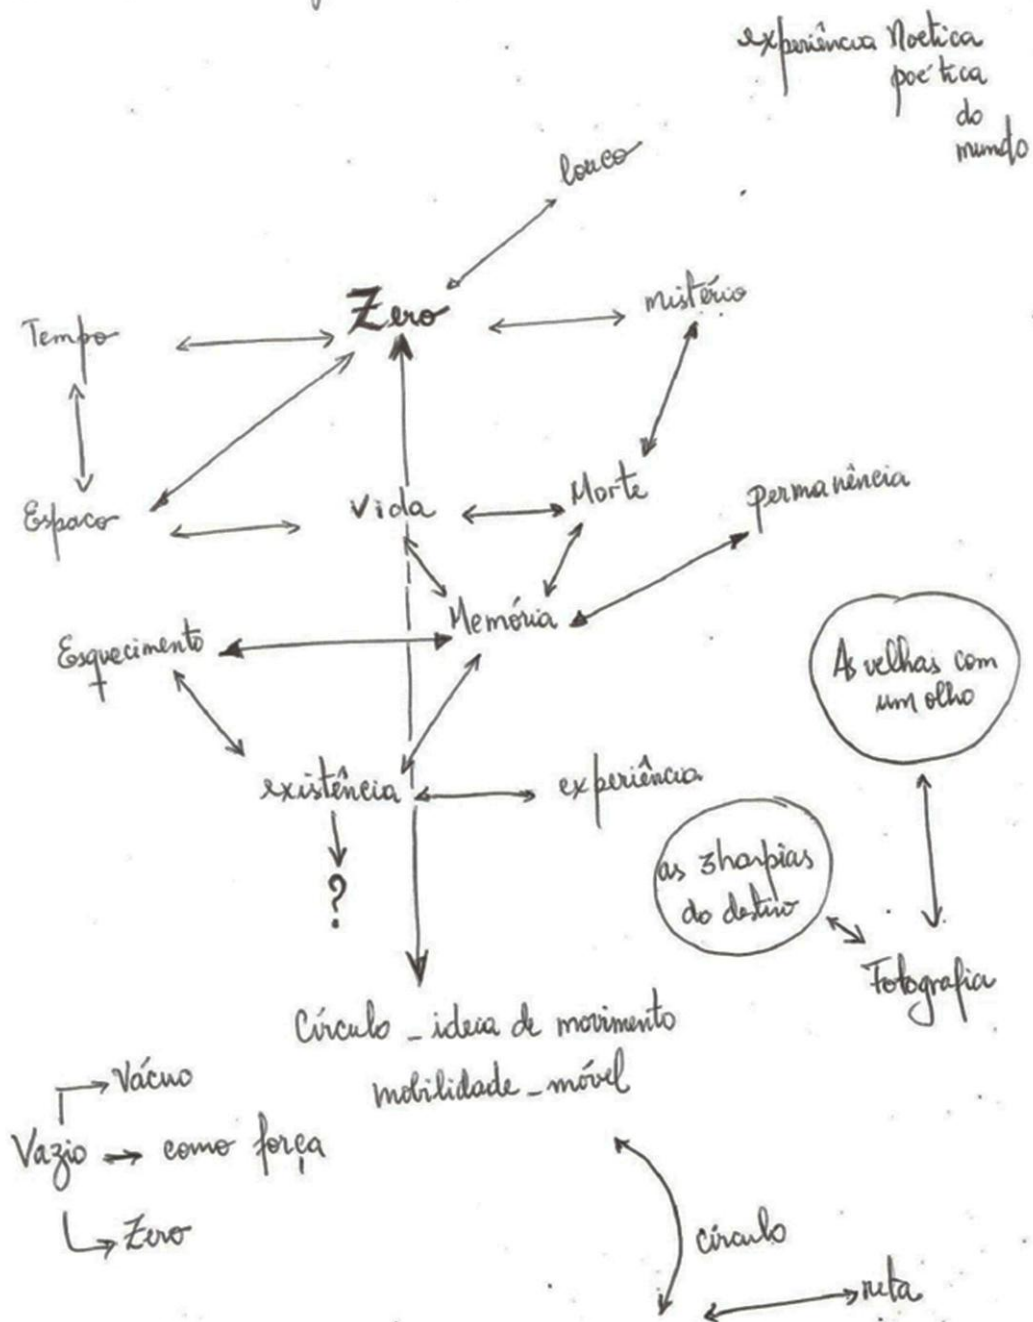 experiência Noetica
poética
do
mundo
louco
Zero
mistério
Tempo
Espaço
Vida
Morte
permanência
Memória
Esquecimento
As velhas com
um olho
existência
experiência
as 3 harpias
do destino
?
Fotografia
Círculo - ideia de movimento
mobilidade - móvel
Vácuo
Vazio → como força
Zero
círculo
reta